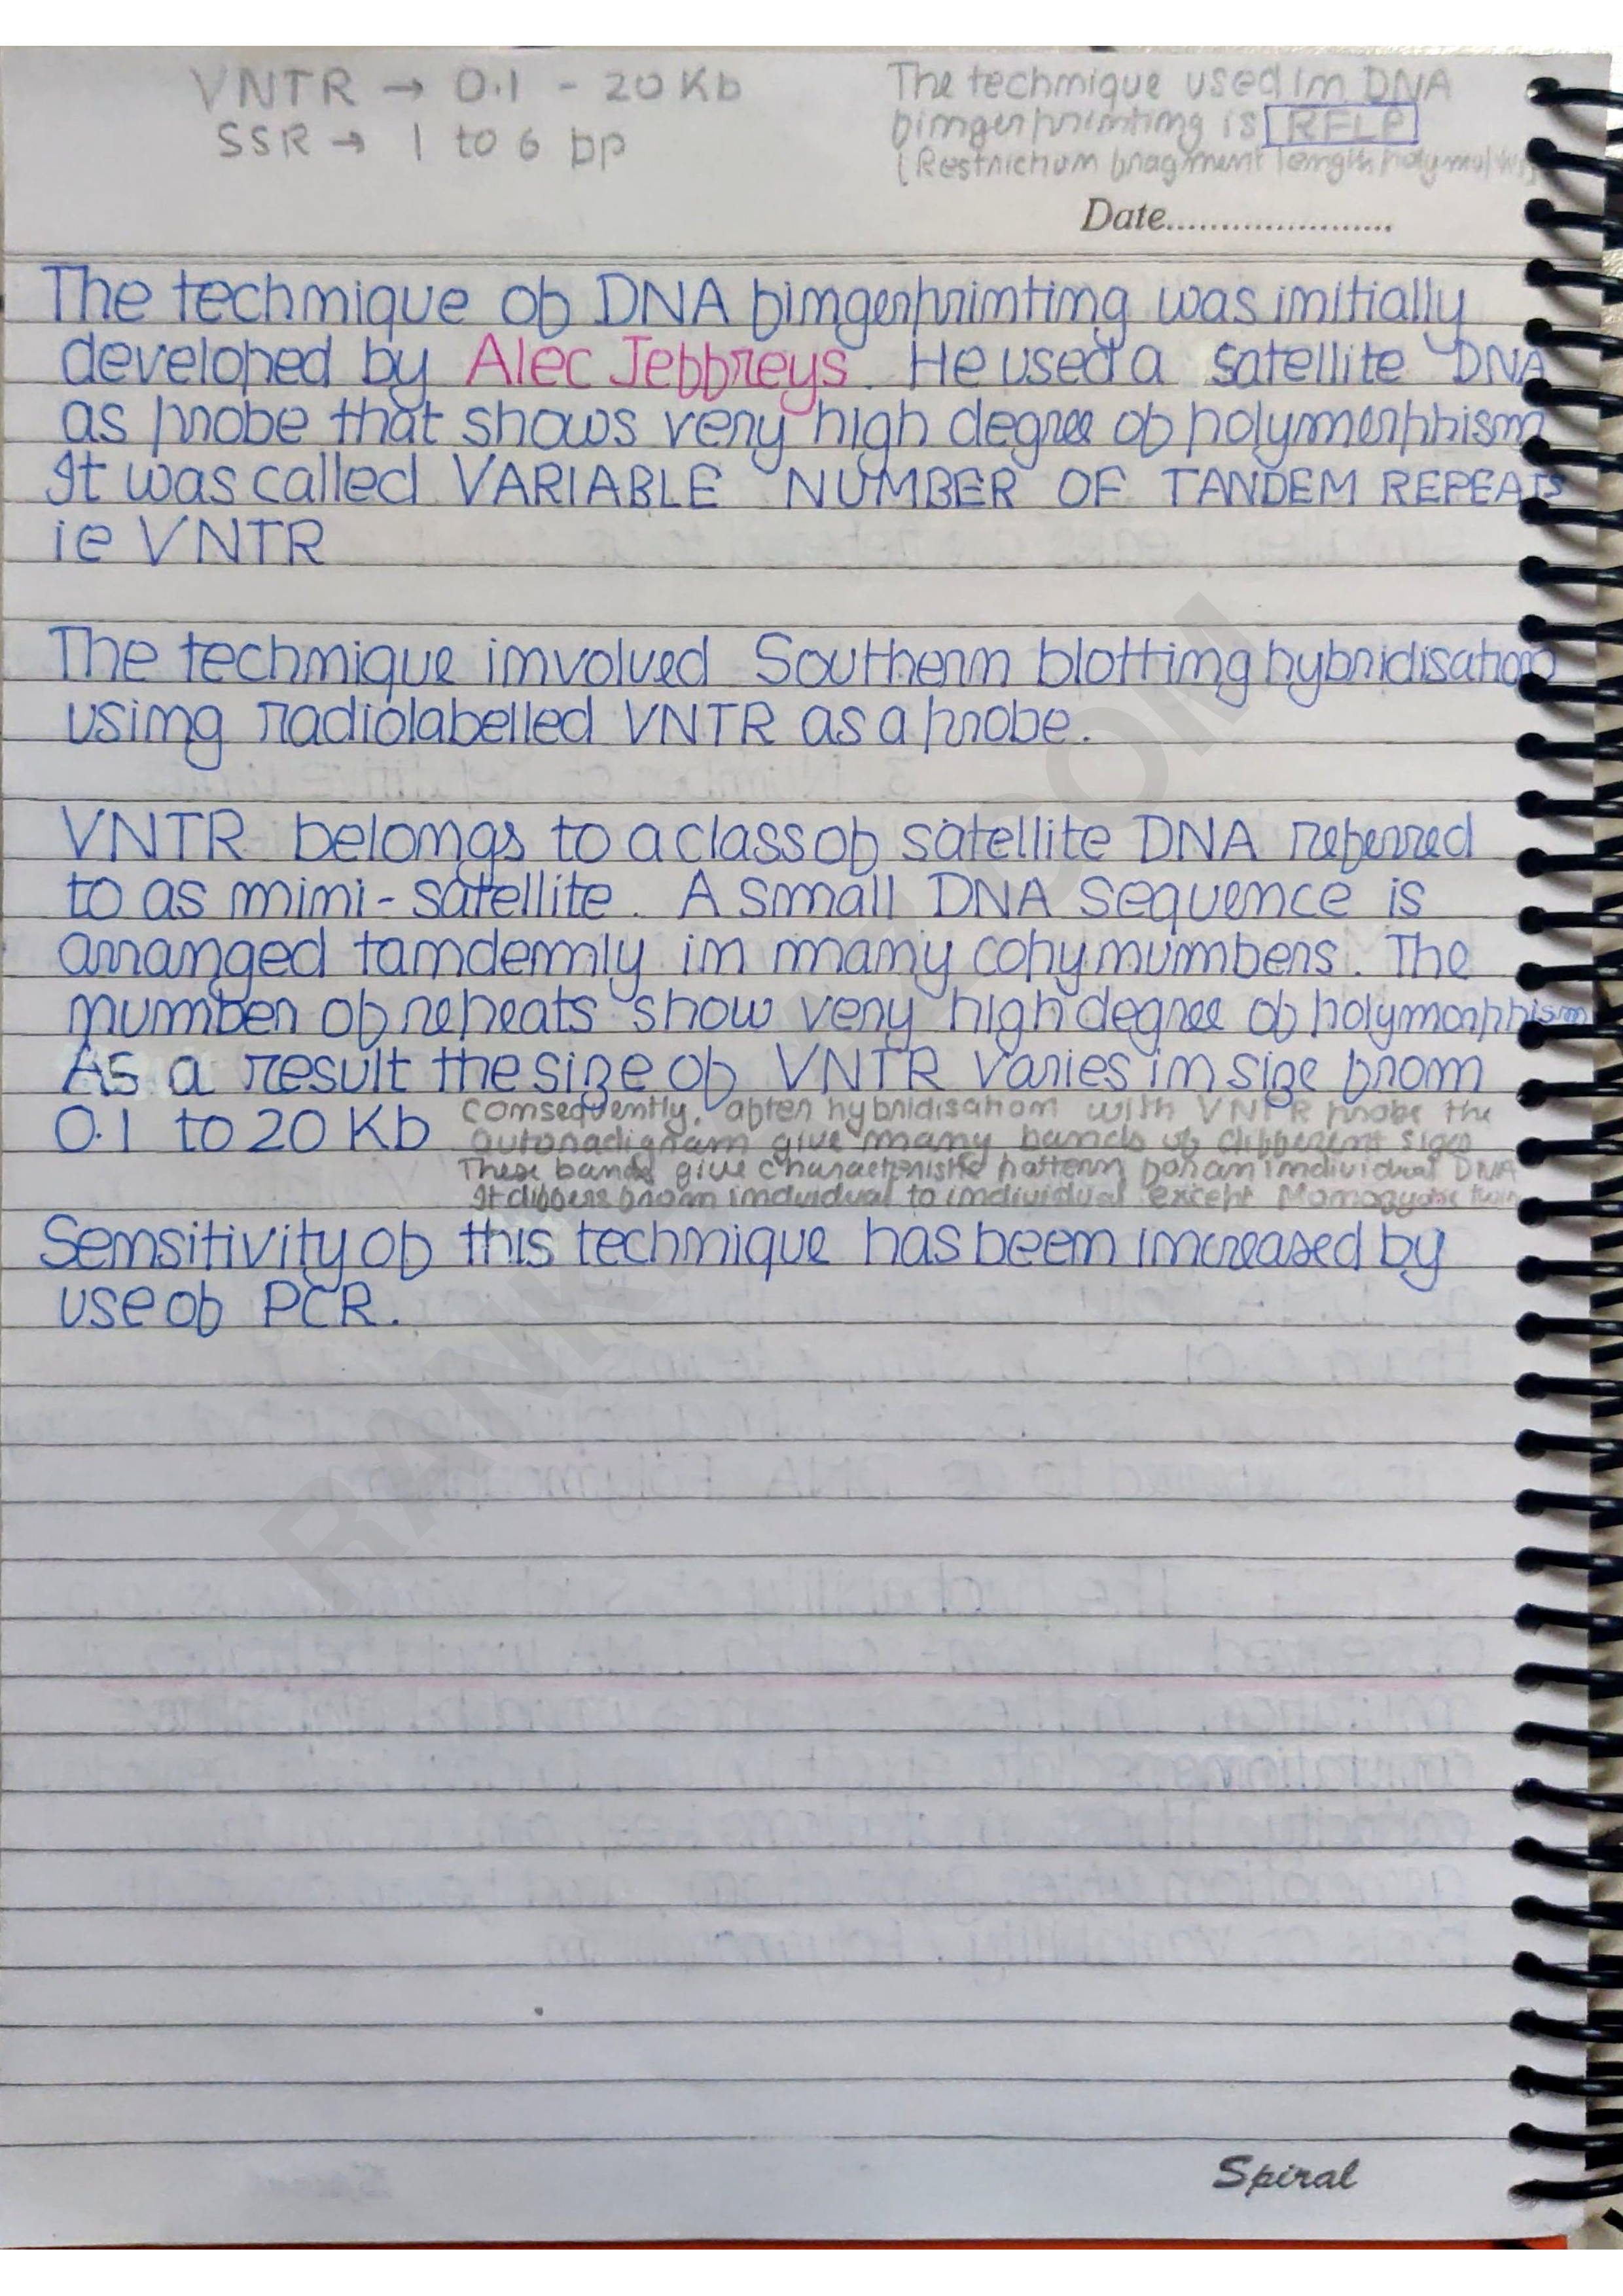 VNTR → 0.1 - 20 Kb
SSR → 1 to 6 bp
The technique used in DNA
fingerprinting is RFLP
(Restriction fragment length
Date......................
The technique of DNA fingerprinting was initially
developed by Alec Jeffreys. He used a satellite DNA
as probe that shows very high degree of polymorphism
It was called VARIABLE NUMBER OF TANDEM REPEATS
ie VNTR
The technique involved Southern blotting hybridisation
using radiolabelled VNTR as a probe.
VNTR belongs to a class of satellite DNA referred
to as mini-satellite. A small DNA sequence is
arranged tandemly in many copy numbers. The
number of repeats show very high degree of polymorphism
As a result the size of VNTR varies in size from
0.1 to 20 Kb
Consequently, after hybridisation with VNTR probe the
autoradigram give many bands of different sizes
These bands give characteristic pattern for an individual DNA
It differs from individual to individual except Monozygotic twins
Sensitivity of this technique has been increased by
use of PCR.
Spiral